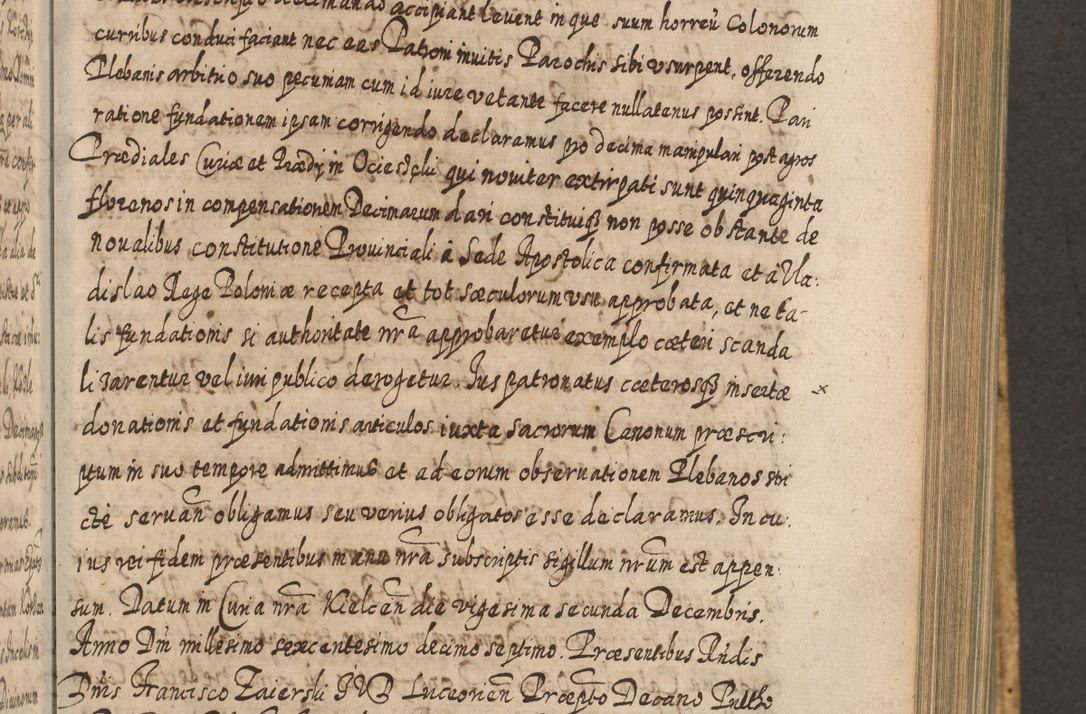 accipiant levent in que suum horreũ Colonorum
curribus conduci faciant nec eas Patroni invitis Parochis sibi vsurpent, offerendo
Plebanis arbitrio suo pecuniam cum id iure vetante facere nullatenus possint. Pari
ratione fundationem ipsam corrigendo declaramus pro decima manipulari post agros
Prædiales Curiæ et Prædij in Ociesęki qui noviter extirpati sunt quinquaginta
florenos in compensationem Decimarum dari constituiq3 non posse obstante de
novalibus constitutione Provinciali â Sede Apostolica confirmata et â Vla:
dislao Rege Poloniæ recepta et tot sæculorum vsu approbata, et ne ta-
lis fundationis si authoritate nrã approbaretur exemplo cæteri scanda
lizarentur vel iuri publico derogetur. Ius patronatus cæterosq3 insertæ ×
donationis et fundationis articulos iuxta sacrorum Canonum præscri:
ptum in suo tempore admittimus et ad eorum observationem Plebanos stri
ctè servañ obligamus seu verius obligatos esse declaramus. In cu:
ius rei fidem præsentibus manu nrã subscriptis sigillum nrũm est appen:
sum. Datum in Curia nrã Kielceñ die vigesima secunda Decembris.
Anno Dñi millesimo sexcentesimo decimo septimo. Præsentibus Rndis
Dñis Francisco Zaierski IVD Luceorieñ Præpto Decano